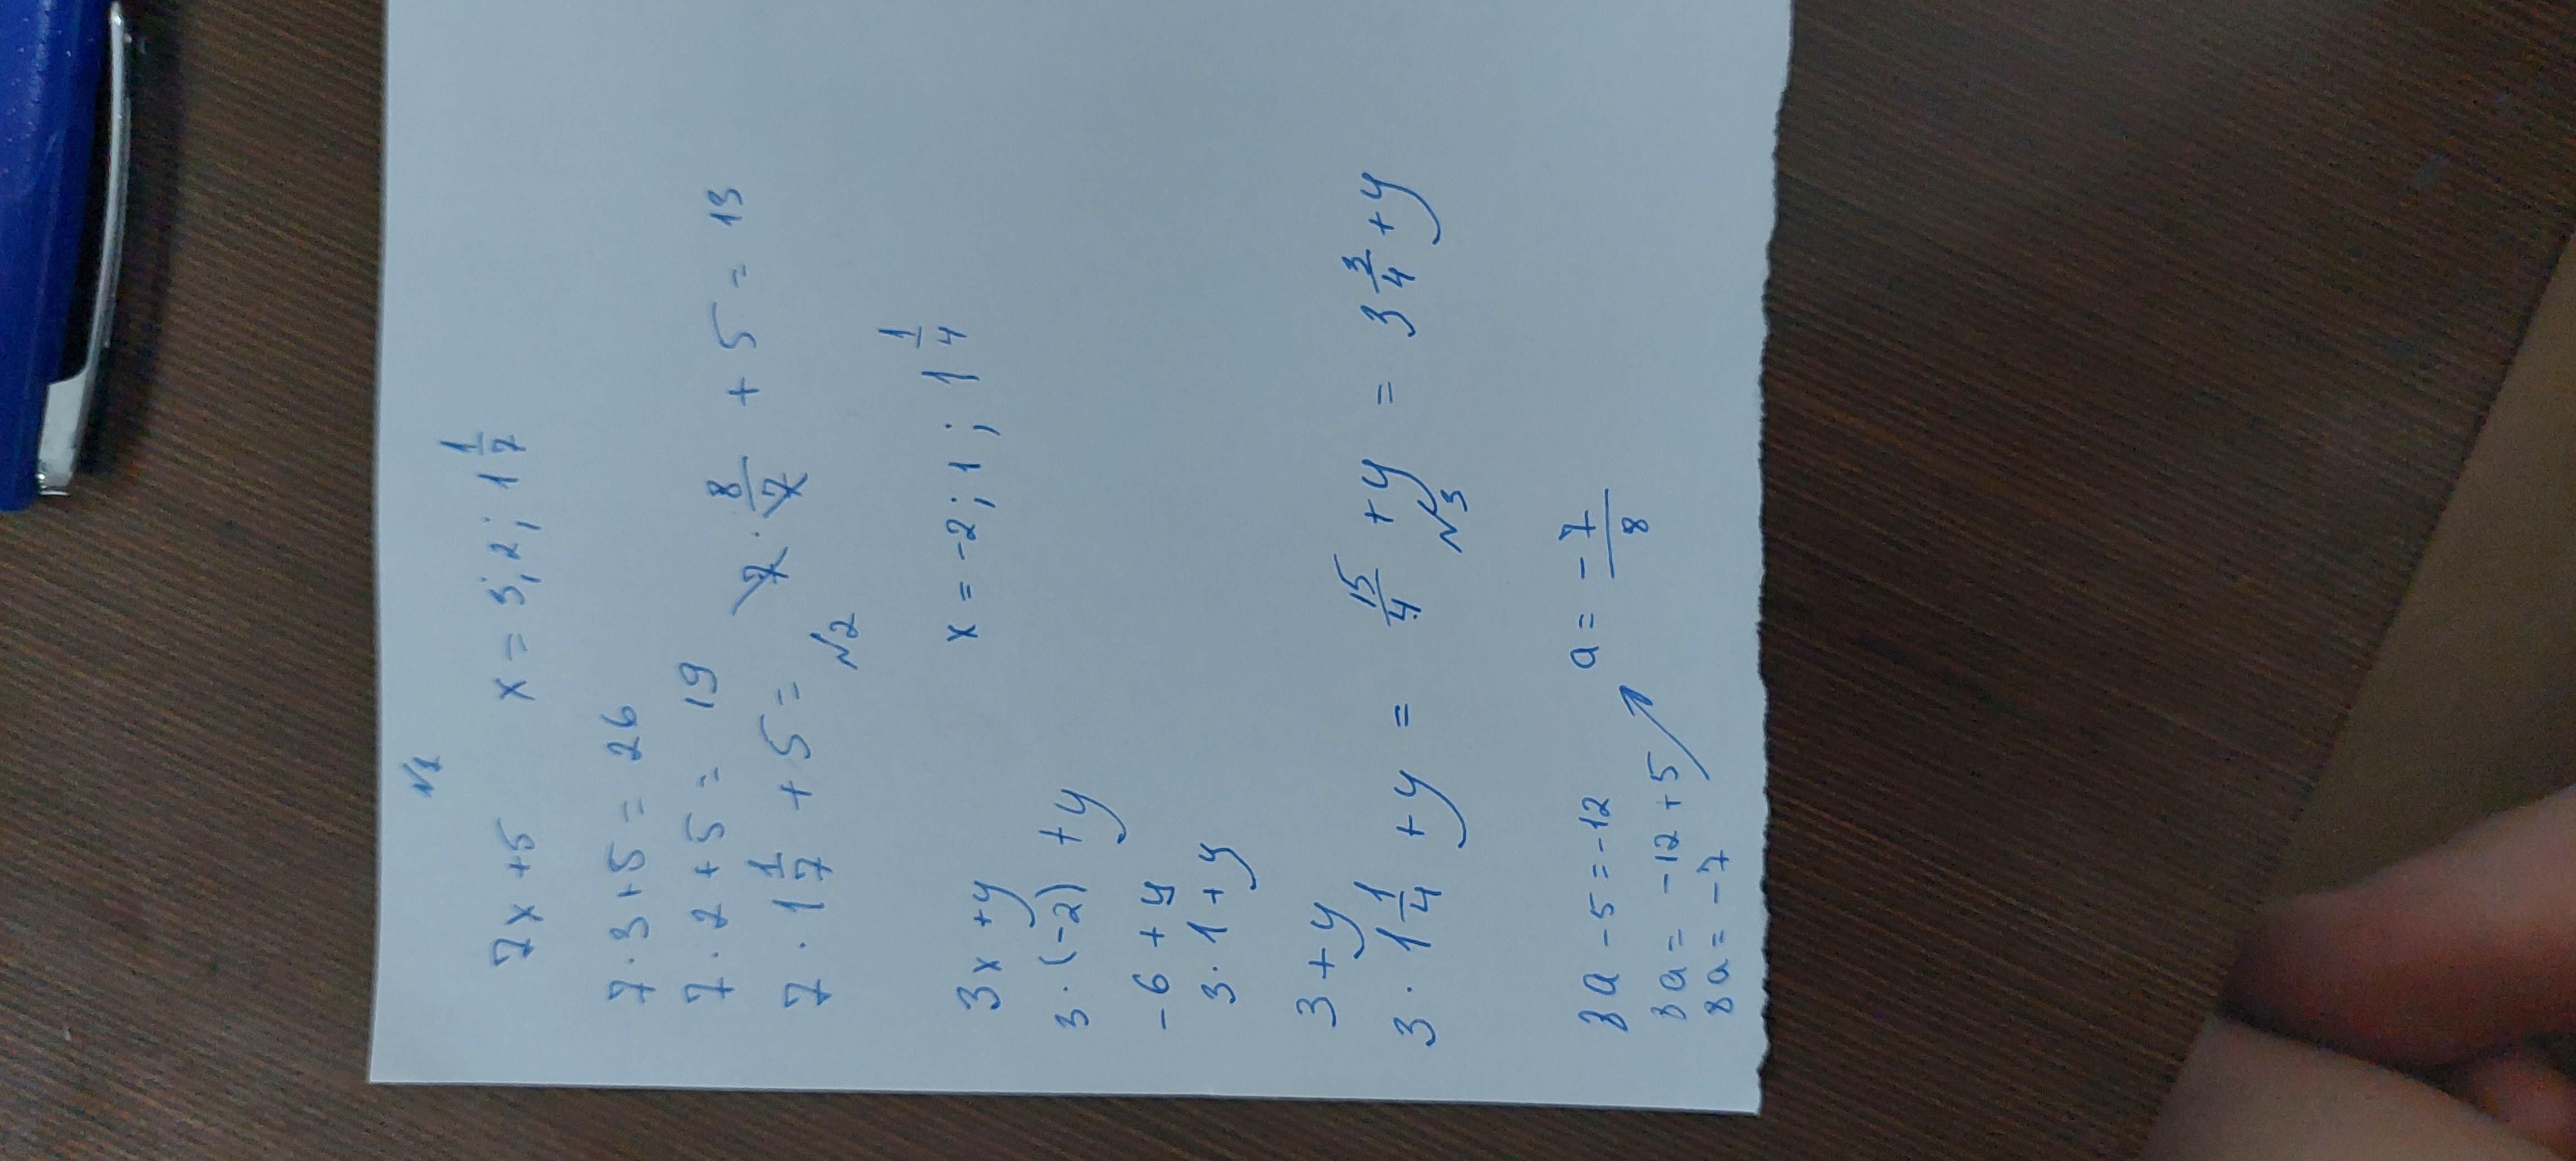 №1
7x+5 x = 3; 2; 1 1/7
7 · 3 + 5 = 26
7 · 2 + 5 = 19
7 · 1 1/7 + 5 = 7 · 8/7 + 5 = 13
№2
3x + y x = -2; 1; 1 1/4
3 · (-2) + y
-6 + y
3 · 1 + y
3 + y
3 · 1 1/4 + y = 15/4 + y = 3 3/4 + y
№3
8a - 5 = -12 a = - 7/8
8a = -12 + 5
8a = -7